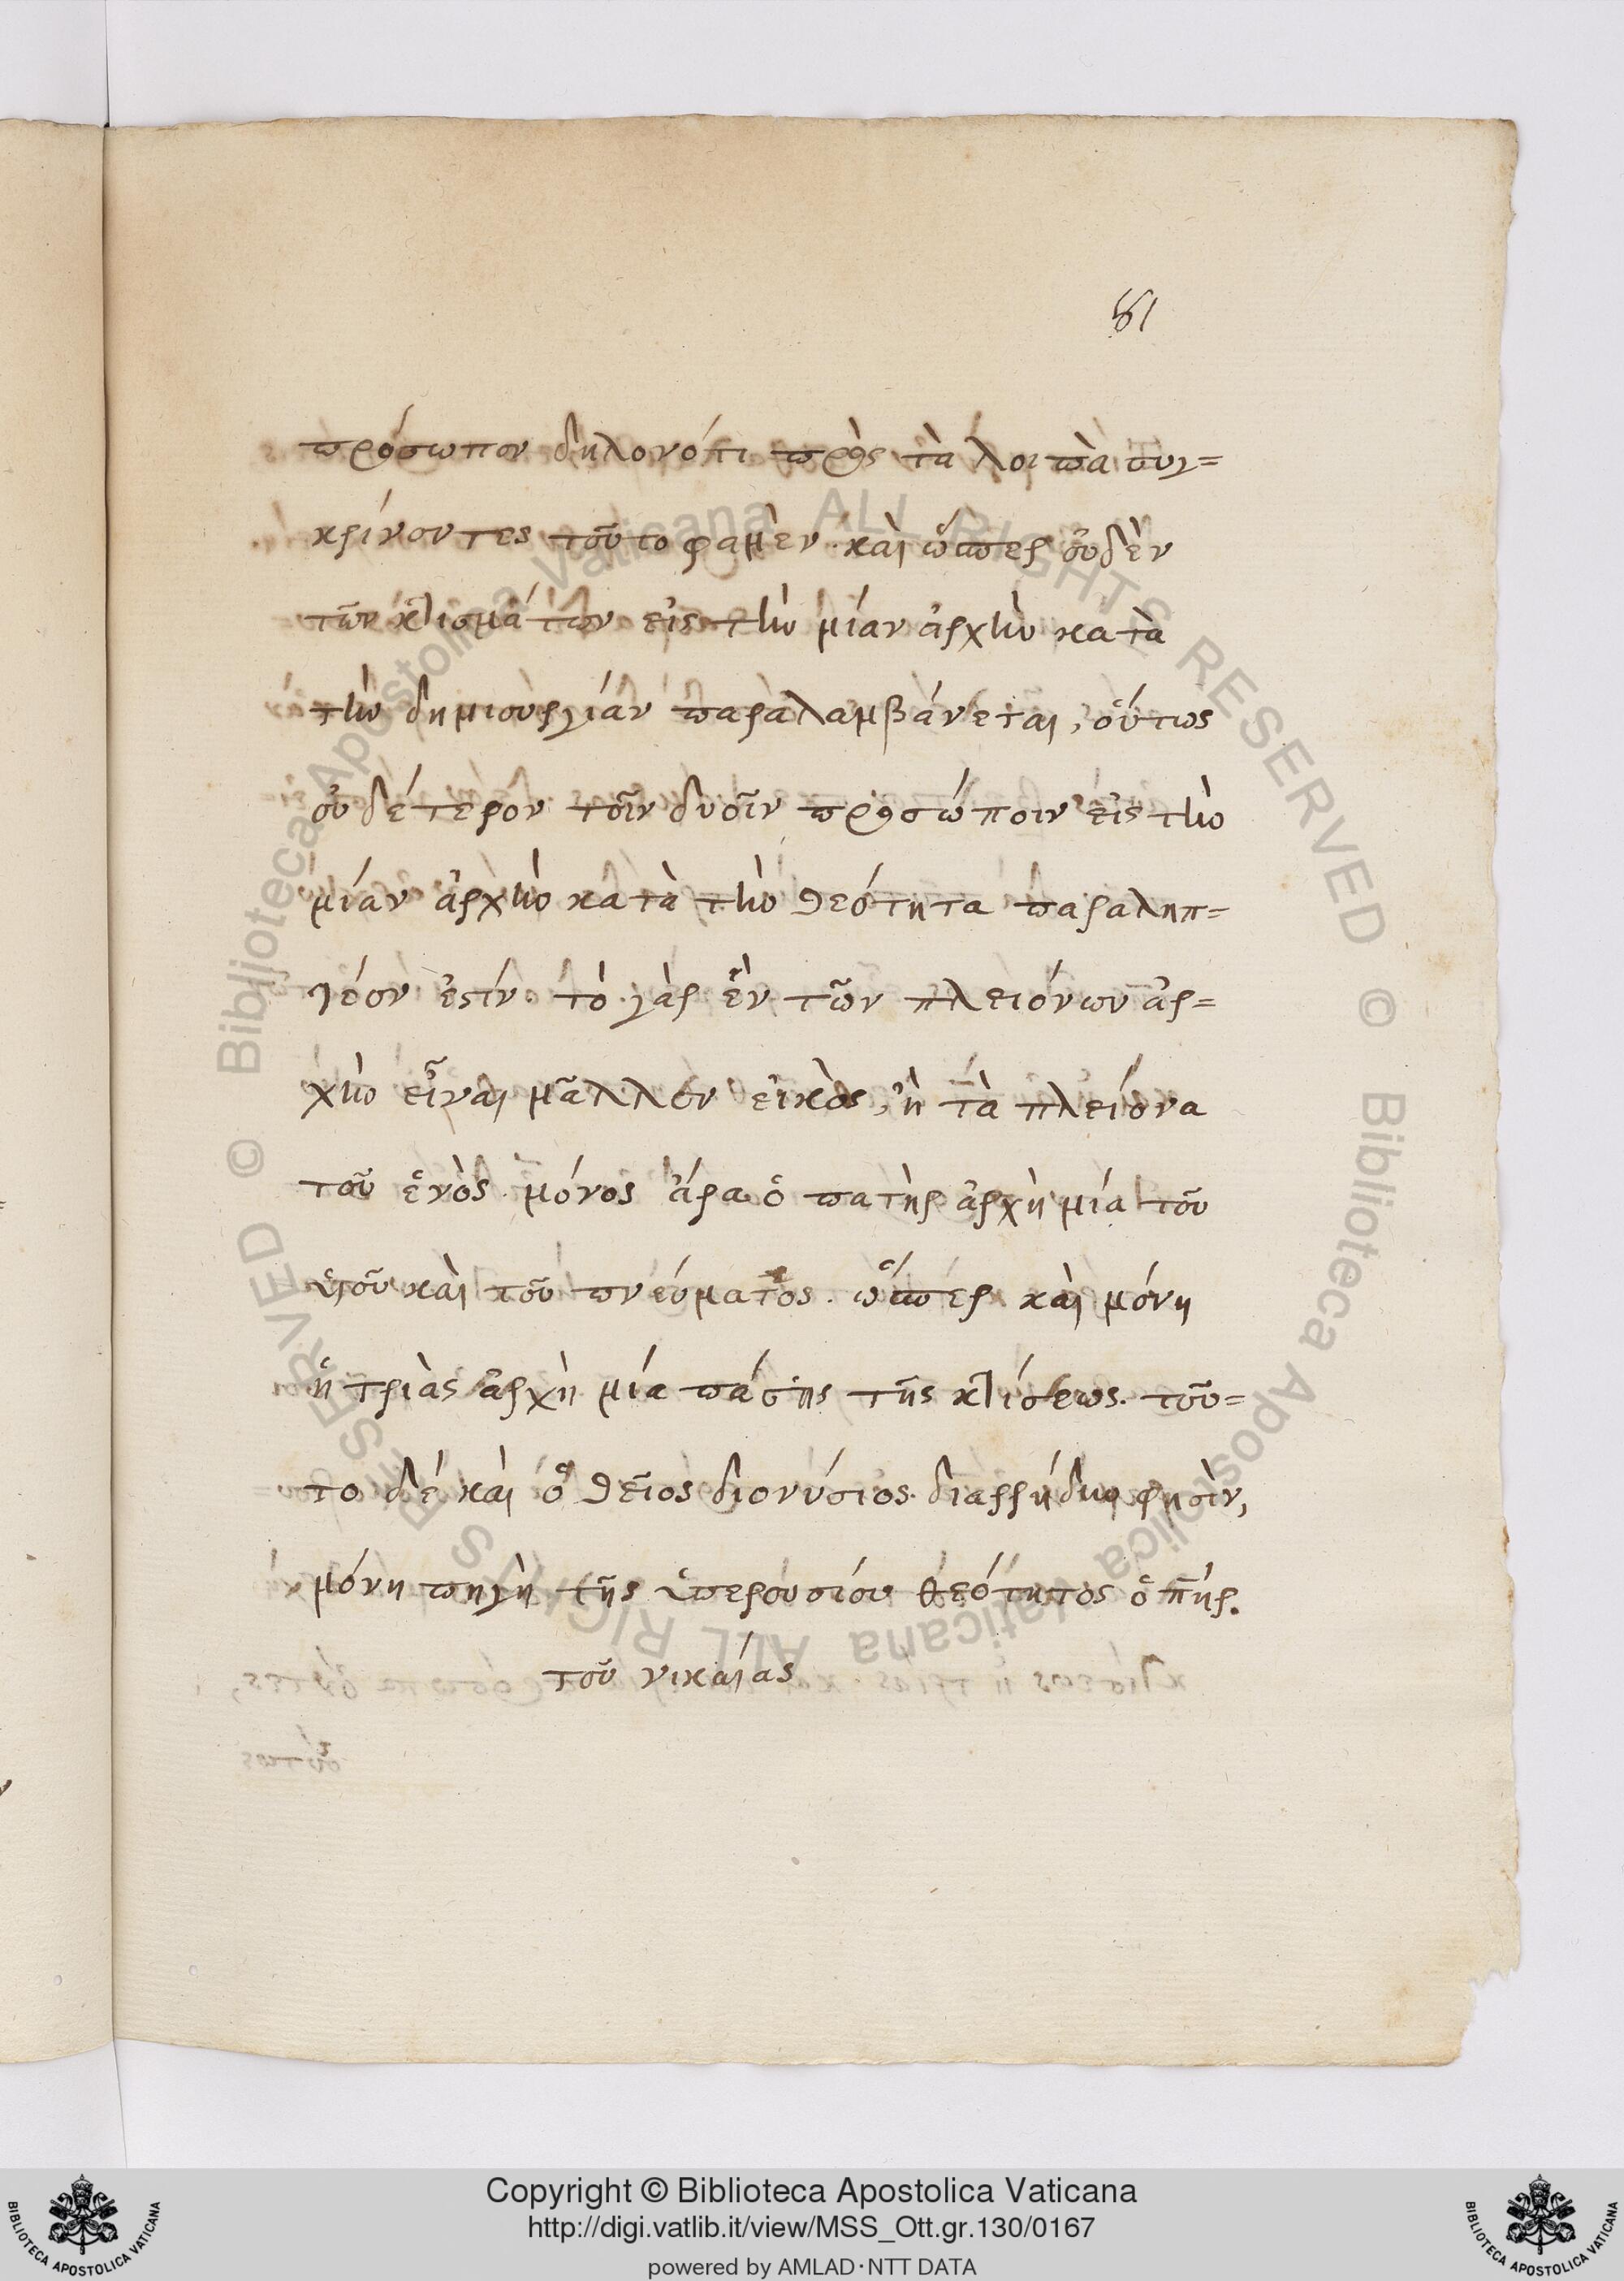 81
πρόσωπον δηλονότι πρὸς τὰ λοιπὰ συγ=
κρίνοντες τοῦτο φαμὲν. καὶ ὥσπερ οὐδὲν
τῶν κτισμάτων εἰς τὴν μίαν ἀρχὴν κατὰ
τὴν δημιουργίαν παραλαμβάνεται, οὕτως
οὐδέτερον τοῖν δυοῖν προσώποιν εἰς τὴν
μίαν ἀρχὴν κατὰ τὴν θεότητα παραληπ=
τέον ἐστίν. τὸ γὰρ ἓν τῶν πλειόνων ἀρ=
χὴν εἶναι μᾶλλον εἰκὸς, ἢ τὰ πλείονα
τοῦ ἑνὸς. μόνος ἄρα ὁ πατὴρ ἀρχὴ μία τοῦ
υἱοῦ καὶ τοῦ πνεύματος. ὥσπερ καὶ μόνη
ἡ τριὰς ἀρχὴ μία πάσης τῆς κτίσεως. τοῦ=
το δὲ καὶ ὁ θεῖος διονύσιος διαρρήδην φησὶν,
μόνη πηγὴ τῆς ὑπερουσίου θεότητος ὁ πήρ.
τοῦ νικαίας
Copyright © Biblioteca Apostolica Vaticana
http://digi.vatlib.it/view/MSS_Ott.gr.130/0167
powered by AMLAD·NTT DATA
© Biblioteca Apostolica Vaticana ALL RIGHTS RESERVED © Biblioteca Apostolica Vaticana ALL RIGHTS RESERVED
BIBLIOTECA APOSTOLICA VATICANA
BIBLIOTECA APOSTOLICA VATICANA